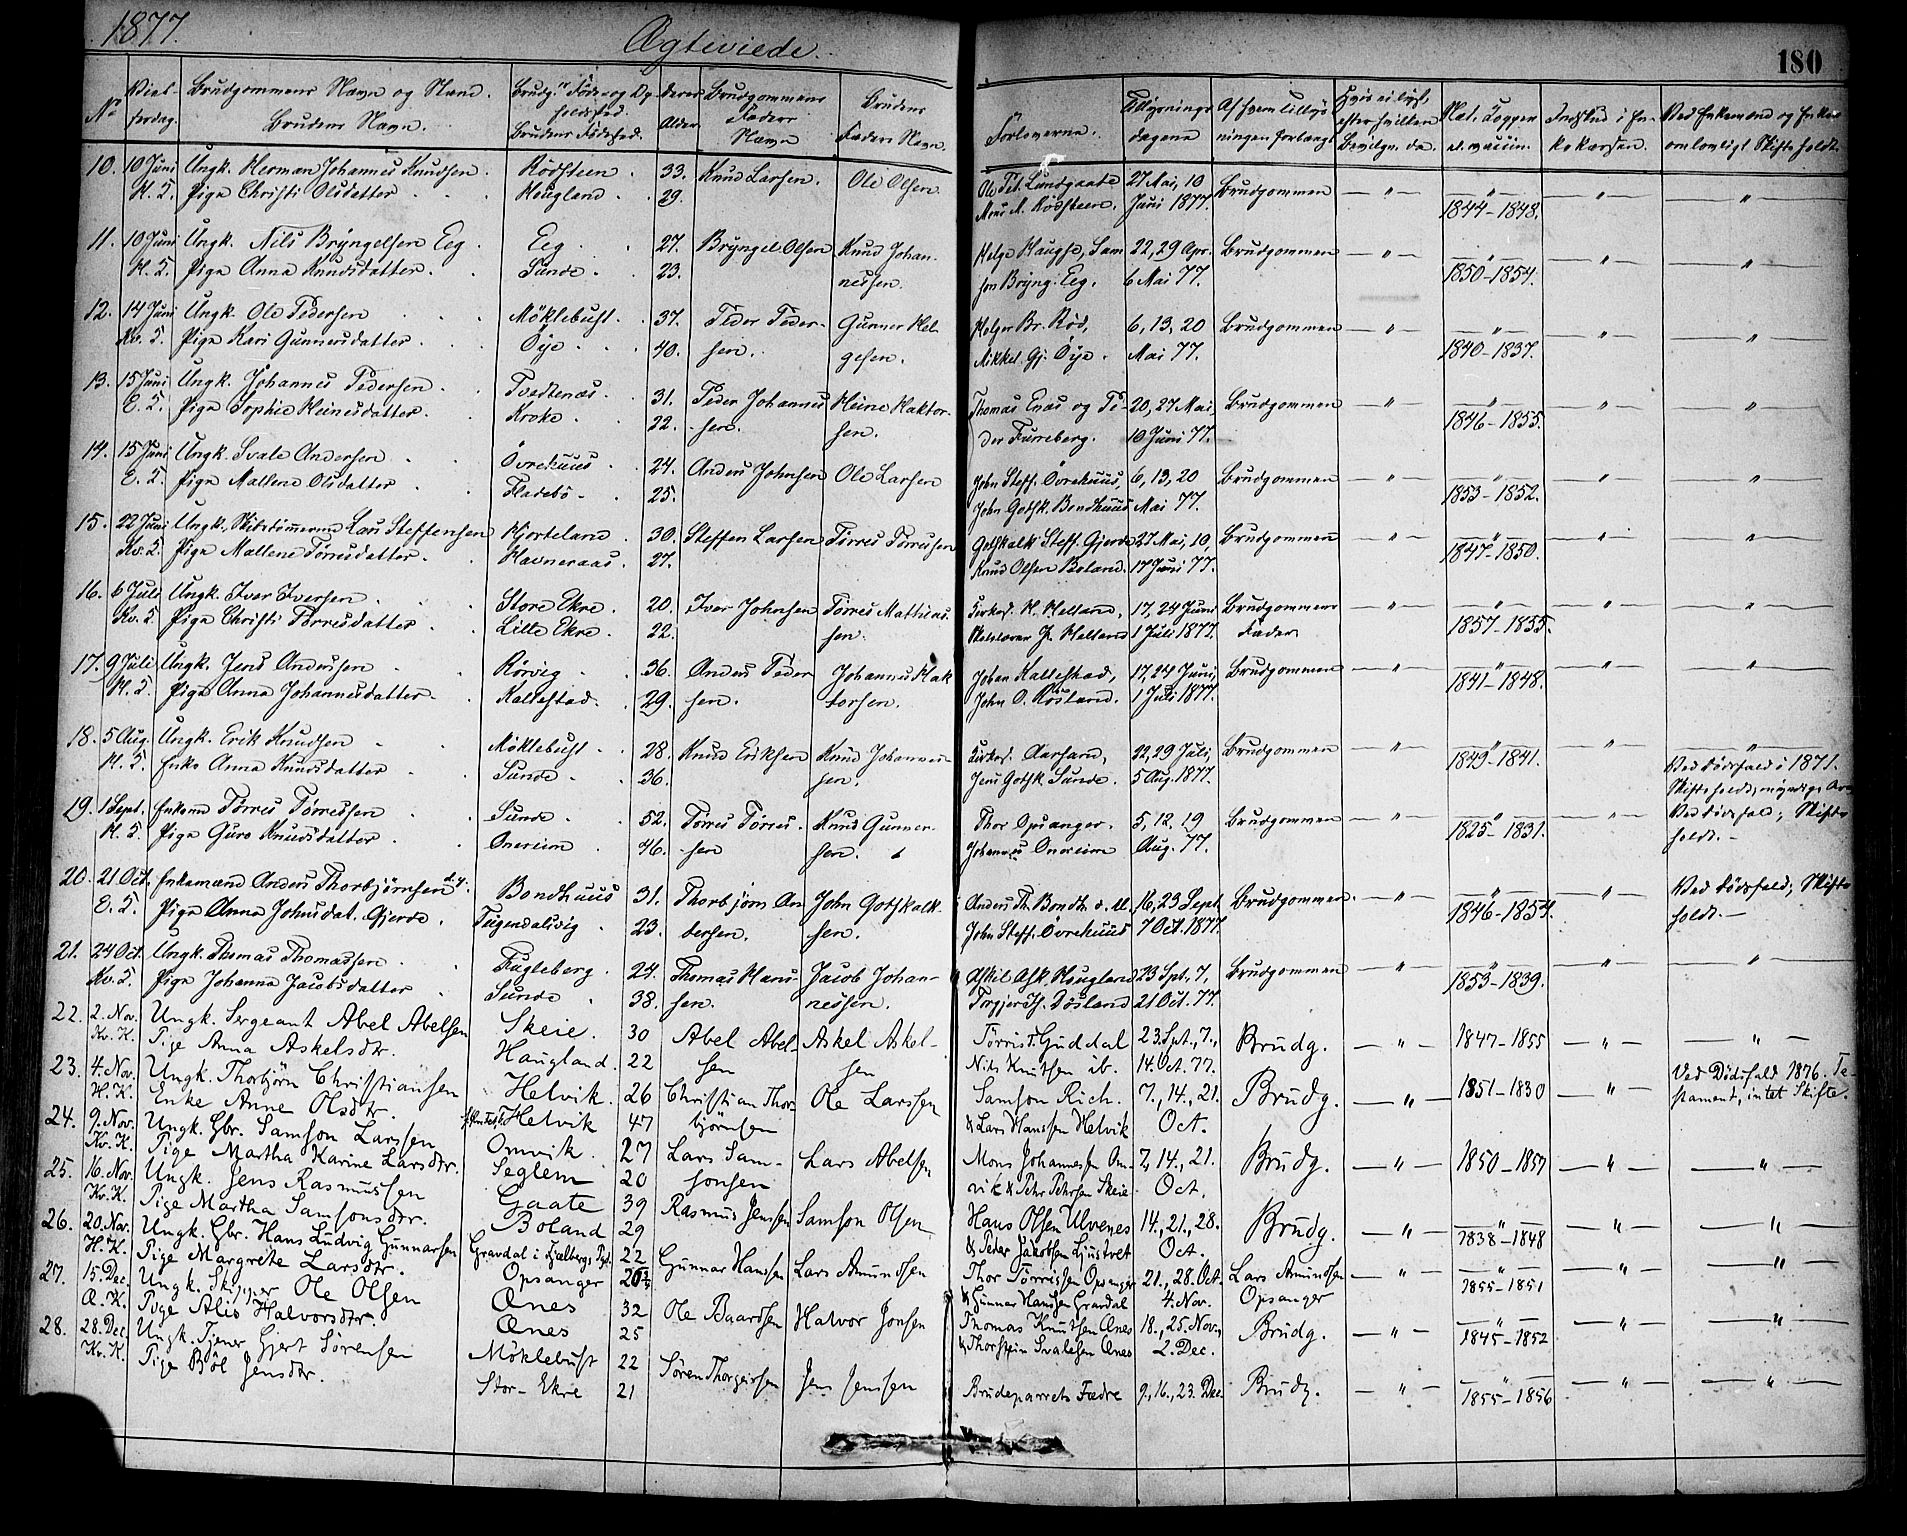 1877.
Ægteviede.
180
No
Viel-
sesdag.
Brudgommens Navn og Stand.
Brudens Navn.
Brudens Fødested.
Deres
Alder
Brudgommens
Faders
Navn
Brudens
Faders Navn.
Forloverne.
Tillysnings
dagene
10. 10 Juni Ungk. Herman Johannes Knudsen. Rødsteen. 33. Knud Larsen. Ole Olsen Ol. Pet. Lundgaate 27 Mai, 10 Brudgommen — " — — " — — " —
H. S. Pige Christi Olsdatter Hougland. 29. Mons M. Rødsteen. Juni 1877. 1844-1848.
11. 10 Juni Ungk. Nils Bryngelsen Eeg. Eeg. 27. Bryngel Olsen Knud Johan- Helge Haugse, Sam 22, 29 Apr. Brudgommen — " — — " — — " —
H. S. Pige Anna Knudsdatter. Sunde. 23. nessen. son Bryng. Eeg. 6 Mai 77. 1850-1854.
12. 14 Juni Ungk. Ole Pedersen Möklebust. 37. Peder Peder- Gunner Hel- Holger Br. Rød, 6, 13, 20 Brudgommen — " — — " — — " —
Kv. S. Pige Kari Gunnersdatter. Øye. 40. sen. gesen. Mikkel Gj. Øye. Mai 77. 1840-1837.
13. 15 Juni Ungk. Johannes Pedersen. Tvedtenæs. 31. Peder Johannes Heine Haktor- Thomas Enæs og Pe- 20, 27 Mai, Brudgommen — " — — " — — " —
E. S. Pige Sophie Heinesdatter. Kroke. 22. sen. sen. der Furreberg. 10 Juni 77. 1846-1855.
14. 15 Juni Ungk. Svale Andersen Øvrehuus. 24. Anders Johnsen Ole Larsen John Steff. Øvrehuus, 6, 13, 20 Brudgommen — " — — " — — " —
E. S. Pige Mallene Olsdatter Fladebø. 25. John Gotsk. Bondhuus Mai 77. 1853-1852.
15. 22 Juni Ungk. Skibstømmerm. Lars Steffensen Hjorteland. 30. Steffen Larsen Tørres Tørresen Gotskalk Steff. Gjerde 27 Mai, 10, Brudgommen — " — — " — — " —
Kv. S. Pige Mallene Tørresdatter. Havneraas. 27. Knud Olsen Boland. 17 Juni 77. 1847-1850.
16. 6 Juli Ungk. Iver Iversen. Store Ekre. 20. Iver Johnsen Tørres Mathias- Kirkes. H. Helland, 17, 24 Juni Brudgommens — " — — " — — " —
Kv. S. Pige Christi Tørresdatter Lille Ekre. 22. sen. Helland 1 Juli 1877. Fader 1857-1855.
17. 9 Juli Ungk. Jens Andersen Rørvig 36. Anders Peder Johannes Hak Johan Kaltestad, 17, 24 Juni, Brudgommen — " — — " — — " —
H. S. Pige Anna Johannesdatter. Kaltestad. 29. sen. torsen. John O. Røsland. 1 Juli 1877. 1841-1848.
18. 5 Aug. Ungk. Erik Knudsen Möklebust. 28. Knud Eriksen Knud Johannes- Kirkes. Aarsand, 22, 29 Juli, Brudgommen — " — — " — — " —
H. S. Enke Anna Knudsdatter Sunde. 36. sen. Jens Gotsk. Sunde. 5 Aug. 1877. 1849-1841. Ved Dødsfald i 1871.
19. 1 Sept. Enkem. Tørres Tørressen Sunde. 52. Tørres Tørres- Knud Gunner- Thor Opsanger. 5, 12, 19 Brudgommen — " — — " — Ved Dødsfald; Skifte
H. S. Pige Guro Knudsdatter Onereim 46. sen sen. Johannes Onereim Aug. 77. 1825-1831. holdt. —
20. 21 Oct. Enkemand Anders Thorbjørnsen d. y. Bondhuus 31. Thorbjørn An John Gotskalk- Anders Th. Bondh. d. æl. 16, 23 Sept. Brudgommen. — " — — " — Ved Dødsfald; Skifte
E. S. Pige Anna Johnsdat. Gjerde. Fugendalsvig 23. dersen. sen. John Steff. Øvrehuus 7 Oct. 1877. 1846-1854. holdt. —
21. 24 Oct. Ungk. Thomas Thomassen. Fugleberg. 24. Thomas Hans- Jacob Johan- Askil Ask. Hougland 23 Spt., 7, Brudgommen — " — — " — — " —
Kv. S. Pige Johanna Jacobsdatter Sunde 38. sen. nessen. Torgjer Th. Døsland 21 Oct. 77. 1853-1839.
22. 2. Nov. Ungk. Sergeant Abel Abelsen Skeie. 30 Abel Abel- Askel Askel- Tørris T. Guddal 23. Spt., 7., Brudg. — " — 1847-1855 — " — — " —
Kv. K. Pige Anna Askelsdtr. Haugland. 22 sen sen Nils Knutsen ib. 14. Oct. 77.
23. 4. Nov. Ungk. Thorbjörn Christiansen Helvik 26 Christian Thor- Ole Larssen Samson Rich. 7., 14., 21. Brudg. — " — 1851-1830 — " — Ved Dødsfald 1876. Te-
H. K. Enke Anne Olsdtr. Helvik 47 bjørnsen & Lars Hanssen Helvik Oct. stament, intet Skifte.
24. 9. Nov. Ungk. Gbr. Samson Larssen Omvik. 27 Lars Sam- Lars Abelsen Mons Johannessen Om- 7., 14., 21. Brudg. — " — 1850-1857 — " — — " —
Kv. K. Pige Martha Karine Larsdtr. Seglem 20 sonsen vik & Pehr Pehrsen Skeie Oct.
25. 16. Nov. Ungk. Jens Rasmussen Gaate 39 Rasmus Jensen Samson Olsen Hans Olsen Ulvenes 14., 21., 28. Brudg. — " — — " — — " —
Kv. K. Pige Martha Samsonsdtr. Boland 29 & Peder Jakobsen Ljustvet Oct. 1838-1848
26. 20. Nov. Ungk. Gbr. Hans Ludvig Gunnarsen Gravdal i Fjelbergs Pgd. 22 Gunnar Hansen Lars Amundsen Thor Tørrissen Opsanger 21., 28. Oct. Lars Amundsen — " — — " — — " —
H. K. Pige Margrete Larsdtr. Opsanger & Gunnar Hansen Gravdal 4. Nov. Opsanger 1855-1851
27. 15. Dec. Ungk. Skipper Ole Olsen Ænes 32 Ole Baardsen Halvor Jonsen Thomas Knutsen Ænes 18., 25. Nov., Brudg. — " — — " — — " —
Æ. K. Pige Alis Halvorsdtr. Ænes 25 & Thorstein Svalesen Ænes 2. Dec. 1845-1852
28. 28. Dec. Ungk. Tjener Gjert Sörensen Möklebust 22 Sören Thorgiersen Jens Jenssen Brudeparrets Fædre 9., 16., 23. Dec. Brudg. — " — — " — — " —
Kv. K. Pige Böl Jensdtr. Stor-Ekre 21 1855-1856